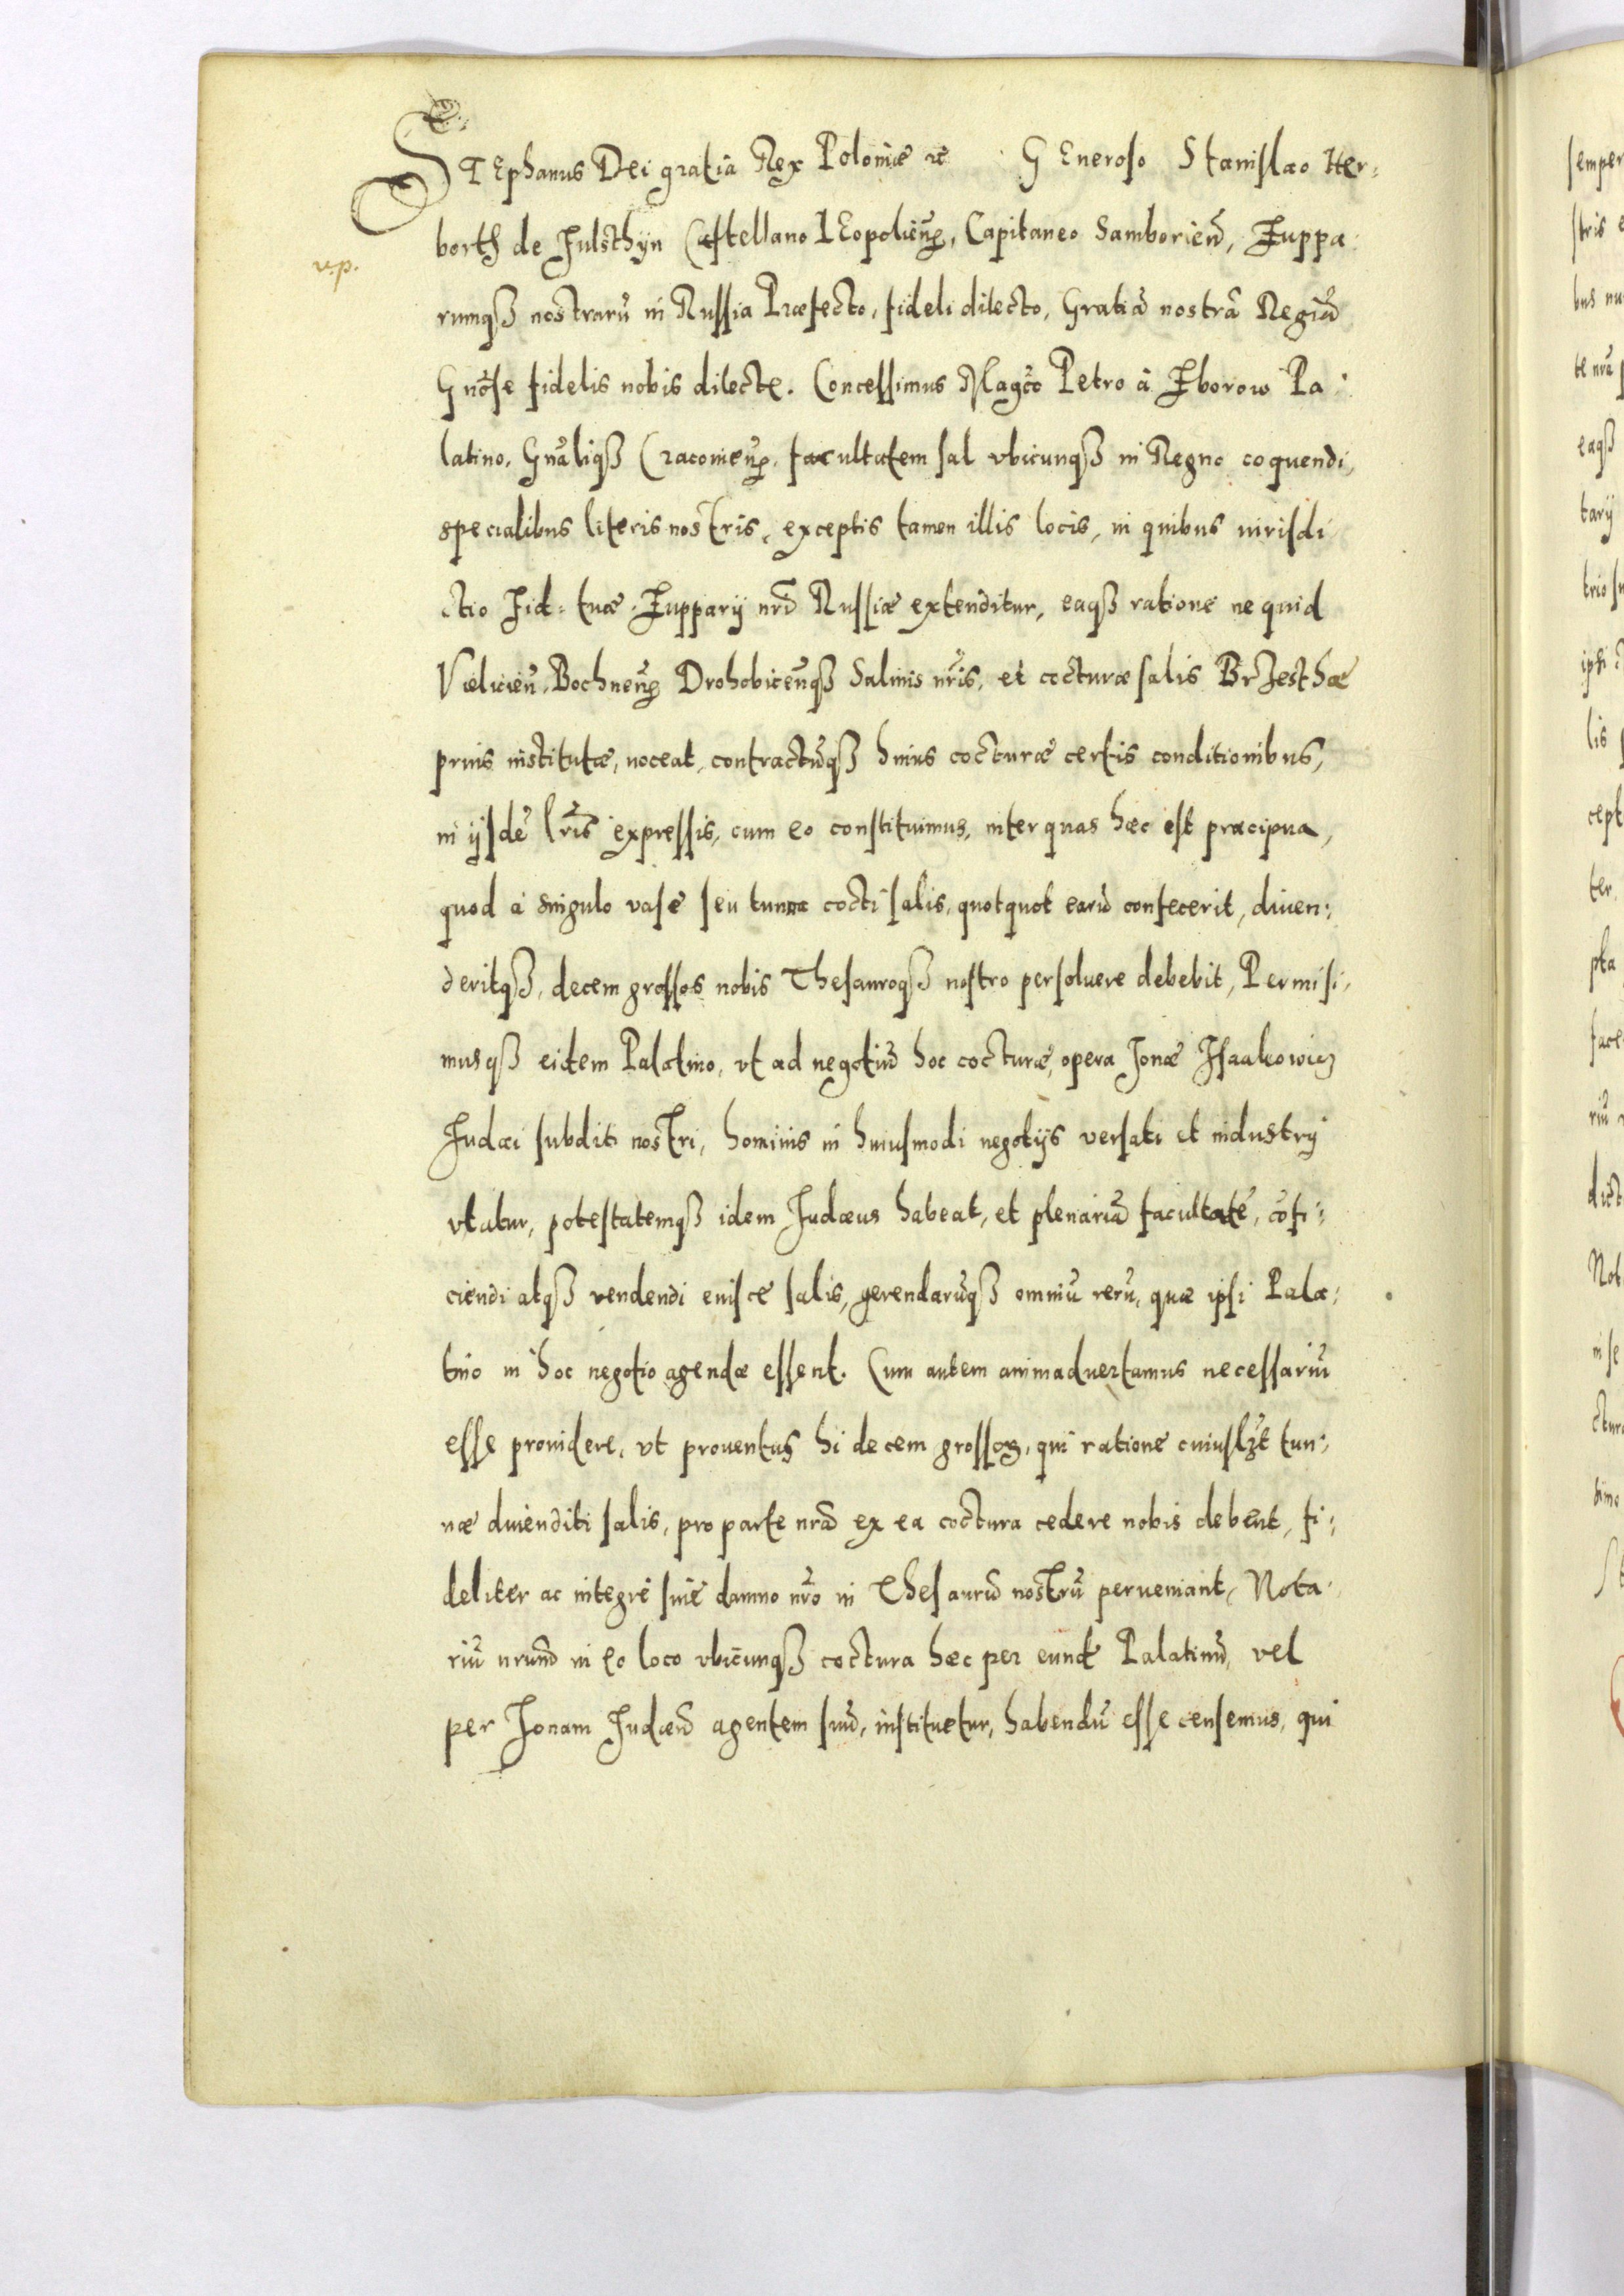 STEphanus Dei gratia Rex Poloniæ &c GEneroso Stanislao Her:
borth de Fulsthyn Castellano LEopolien̄, Capitaneo Samborien̄, Zuppa
rumqꝫ nostrarū in Russia Præfecto, fideli dilecto, Gratiā nostrā Regiā
v.p.
Gnōse fidelis nobis dilecte. Concessimus Magc̄o Petro à Zborow Pa:
latino, Gnāliqꝫ Cracovien̄, facultatem sal vbicunqꝫ in Regno coquendi,
specialibus literis nostris, exceptis tamen illis locis, in quibus iurisdi
ctio Fid: tuæ Zupparij nrā Russiæ extenditur, eaqꝫ ratione ne quid
Vielicien̄, Bochnen̄, Drohobicen̄qꝫ Salinis nr̄is, et cocturæ salis Brzesthæ
prius institutæ, noceat, contractūqꝫ huius cocturæ certis conditionibus,
in ijsdē lr̄is expressis, cum eo constituimus, inter quas hæc est præcipua,
quod à singulo vase seu tunna cocti salis, quotquot earū confecerit, diuen:
deritqꝫ, decem grossos nobis Thesauroqꝫ nostro persoluere debebit, Permisi,
musqꝫ eidem Palatino, vt ad negotiū hoc cocturæ, opera Jonæ Isaakowicz
Judæi subditi nostri, hominis in huiusmodi negotijs versati et industrij
vtatur, potestatemqꝫ idem Judæus habeat, et plenariā facultatē, cōfi:
ciendi atqꝫ vendendi eiusce salis, gerendarūqꝫ omniū rerū, quæ ipsi Pala:
tino in hoc negotio agendæ essent. Cum autem animaduertamus necessariū
esse prouidere, vt prouentus hi decem grossos, qui ratione cuiuslꝫt tun:
næ diuenditi salis, pro parte nrā ex ea coctura cedere nobis debent, fi:
deliter ac integrè sine damno nr̄o in Thesaurū nostrū perueniant, Nota
riū nrunī in eo loco vbicunqꝫ coctura hæc per eundē Palatinū, vel
per Jonam Judæū agentem suū, instituetur, habendū esse censemus, qui